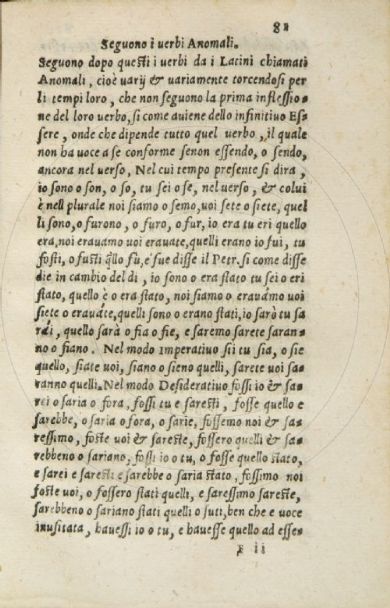 81
Seguono i uerbi Anomali.
Seguono dopo questi i uerbi da i Latini chiamati
Anomali, cioè uarij & uariamente torcendosi per
li tempi loro, che non seguono la prima inflessio-
ne del loro uerbo, si come auiene dello infinitiuo Es-
sere, onde che dipende tutto quel uerbo, il quale
non ha uoce a se conforme senon essendo, o sendo,
ancora nel uerso, Nel cui tempo presente si dira,
io sono o son, o so, tu sei o se, nel uerso, & colui
è nell plurale noi siamo o semo, uoi sete o siete, quel
li sono, o furono, o furo, o fur, io era tu eri quello
era, noi erauamo uoi erauate, quelli erano io fui, tu
fosti, o fusti q̃llo fù, è fue disse il Petr. si come disse
die in cambio del dì, io sono o era stato tu sei o eri
stato, quello è o era stato, noi siamo o erauámo uoi
siete o erauáte, quelli sono o erano stati, io sarò tu sa
rái, quello sarà o fia o fie, e saremo sarete saran-
no o fiano. Nel modo Imperatiuo sii tu sia, o sie
quello, siate uoi, siano o sieno quelli, sarete uoi sa-
ranno quelli. Nel modo Desideratiuo fossi io & sa-
rei o saria o fora, fossi tu e saresti, fosse quello e
sarebbe, o saria o fora, o sarie, fossemo noi & sa-
ressimo, foste uoi & sareste, fossero quelli & sa-
rebbeno o sariano, fossi io o tu, o fosse quello stato,
e sarei e saresti e sarebbe o saria stato, fossimo noi
foste uoi, o fossero stati quelli, e saressimo sareste,
sarebbeno o sariano stati quelli o suti, ben che e uoce
inusitata, hauessi io o tu, e hauesse quello ad esse-
F ii